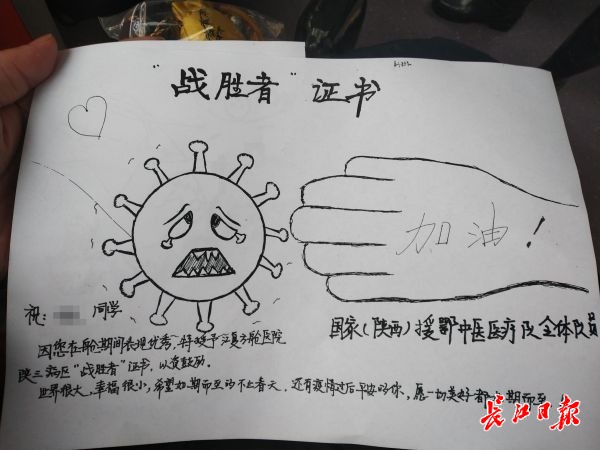 "战胜者"证书
加油!
祝: 同学
国家(陕西)援鄂中医医疗队全体队员
因您在舱期间表现优秀,特授予江夏方舱医院
陕三病区"战胜者"证书,以资鼓励。
世界很大,幸福很小,希望如期而至的不止春天,还有疫情过后平安的你,愿一切美好都如期而至
长江日报